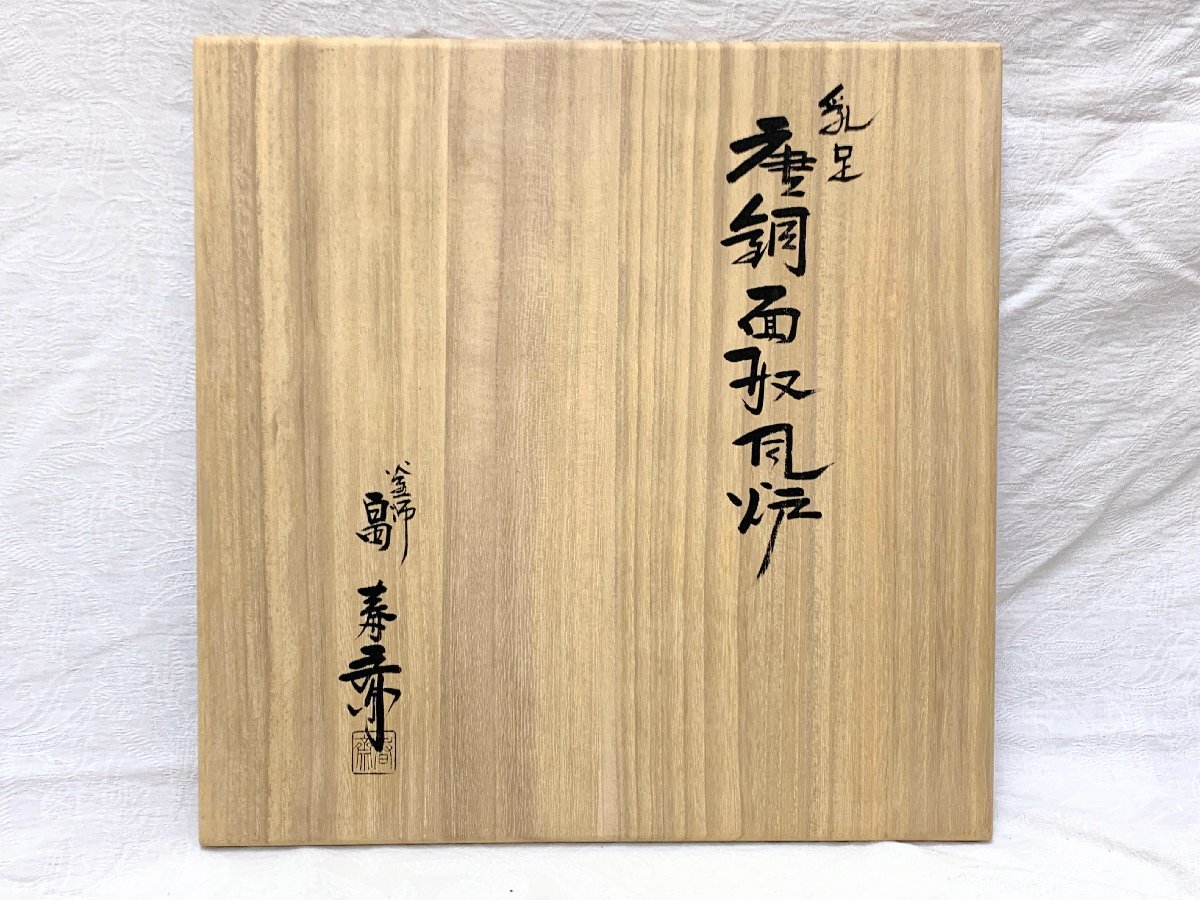 乳足
唐銅面取風炉
釜師
畠 春斎